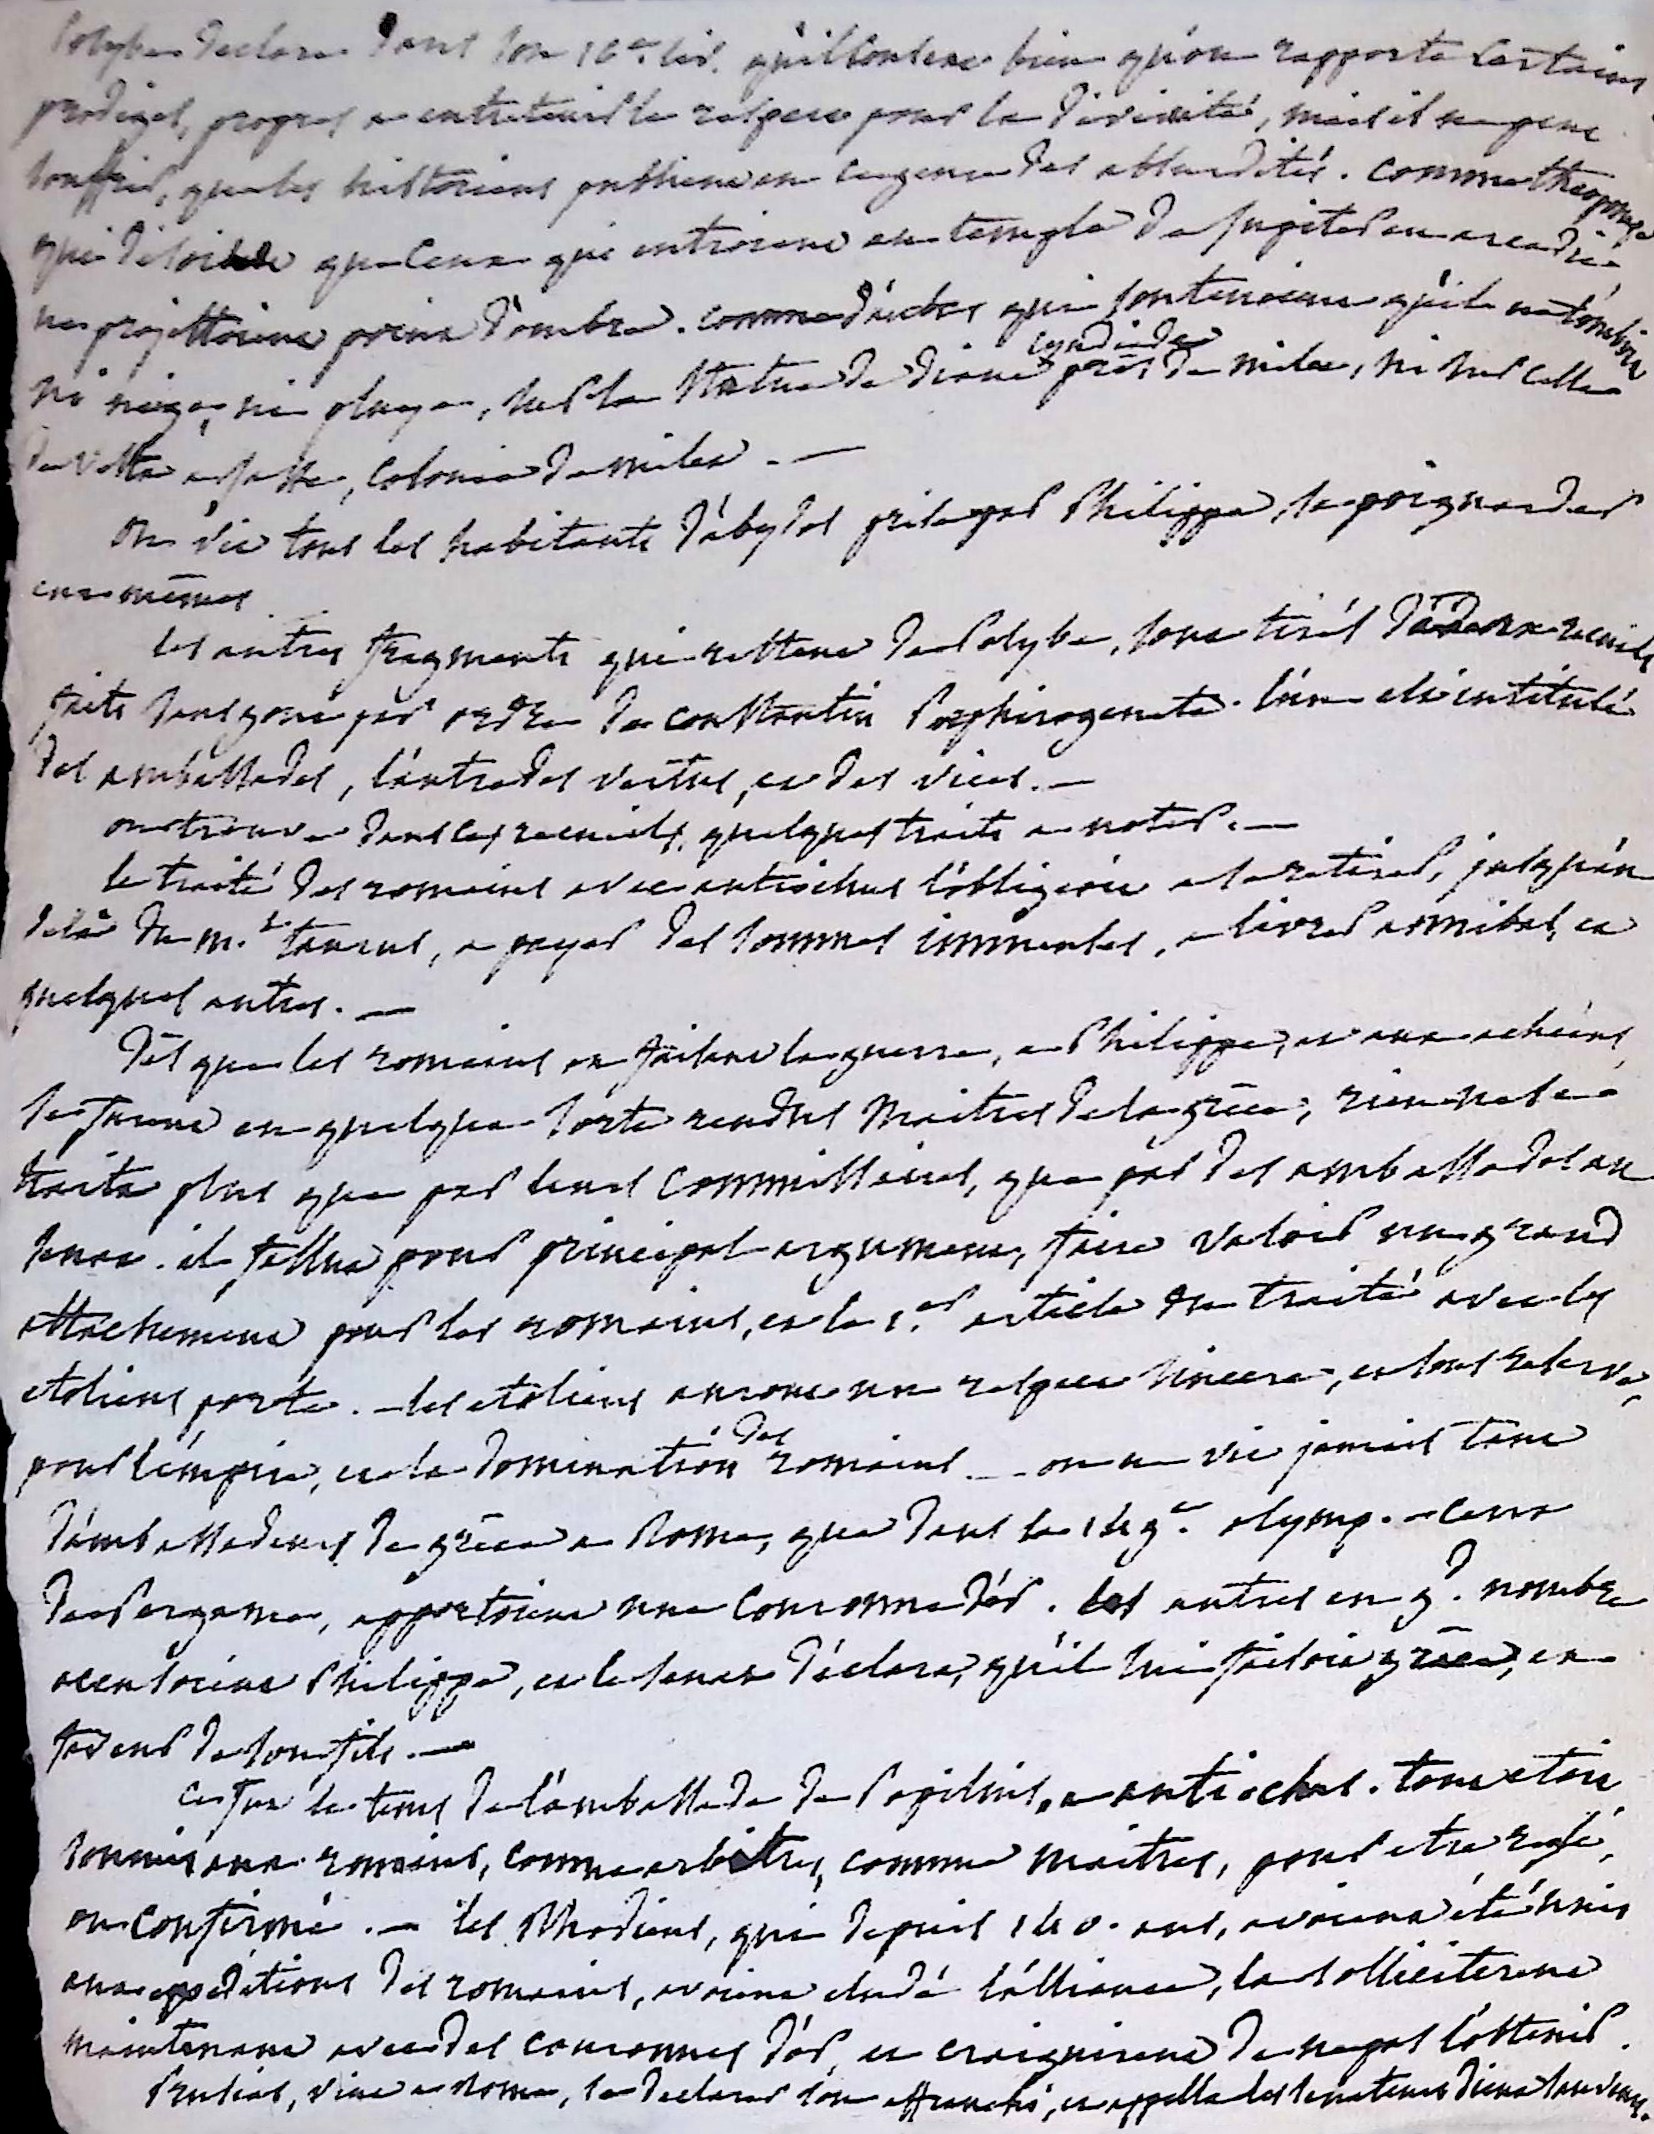 Polybe declare dans son 16e. liv. qu'il consent bien qu'on rapporte certains
prodiges, propres a entretenir le respect pour la divinité, mais il ne peut
souffrir, que les historiens publient en ce genre des absurdités. comme theopompe
qui disoit que ceux qui entroient au temple de Jupiter en arcadie
ne projettoient point d'ombre. comme d'autres qui soutenoient qu'il ne tomboit
ni neige, ni pluye, sur la statue de diane cyndiade près de milet, ni sur celle
de vesta a Jasse, colonie de milet. —
on vit tous les habitants d'abydos pris par Philippe, se poignarder
eux mêmes
les autres fragments qui restent de Polybe, sont tirés de deux recueils
faits dans par ordre de constantin Porphirogenete. l'un est intitulé
des ambassades, l'autre des vertus, et des vices. —
on trouve dans ces recueils, quelques traits a noter. —
le traité des romains avec antiochus l'obligeoit a se retirer, jusqu'au
delà du m.t taurus, a payer des sommes immenses, a livrer annibal, et
quelques autres. —
Dès que les romains en faisant la guerre, a Philippe, et aux achéens,
se furent en quelque sorte rendus maitres de la grèce, rien ne se
traita plus que par leurs commissaires, que par des ambassades au
senat. il fallut pour principal argument, faire valoir un grand
attachement pour les romains, et le 1.er article du traité avec les
etoliens porte. — les etoliens auront un respect sincere, et sans reserve,
pour l'empire, et la domination des romains. — on ne vit jamais tant
d'ambassadeurs de grèce a Rome, que dans la 149e. olymp. — ceux
de Pergame, apportoient une couronne d'or. les autres en g.d nombre
accusoient Philippe, et le senat déclara, qu'il lui faisoit grâce, en
faveur de son fils. —
ce fut le tems de l'ambassade de Popilius, a antiochus. tout etoit
soumis aux romains, comme arbitres, comme maitres, pour etre reglé,
ou confirmé. — les Rhodiens, qui depuis 140. ans, avoient été unis
aux expeditions des romains, avoient eludé l'alliance, la solliciterent
maintenant avec des couronnes d'or, et craignirent de ne pas l'obtenir.
Prusias, vint a Rome, se declarer son affranchi, et appella les senateurs dieux sauveurs.